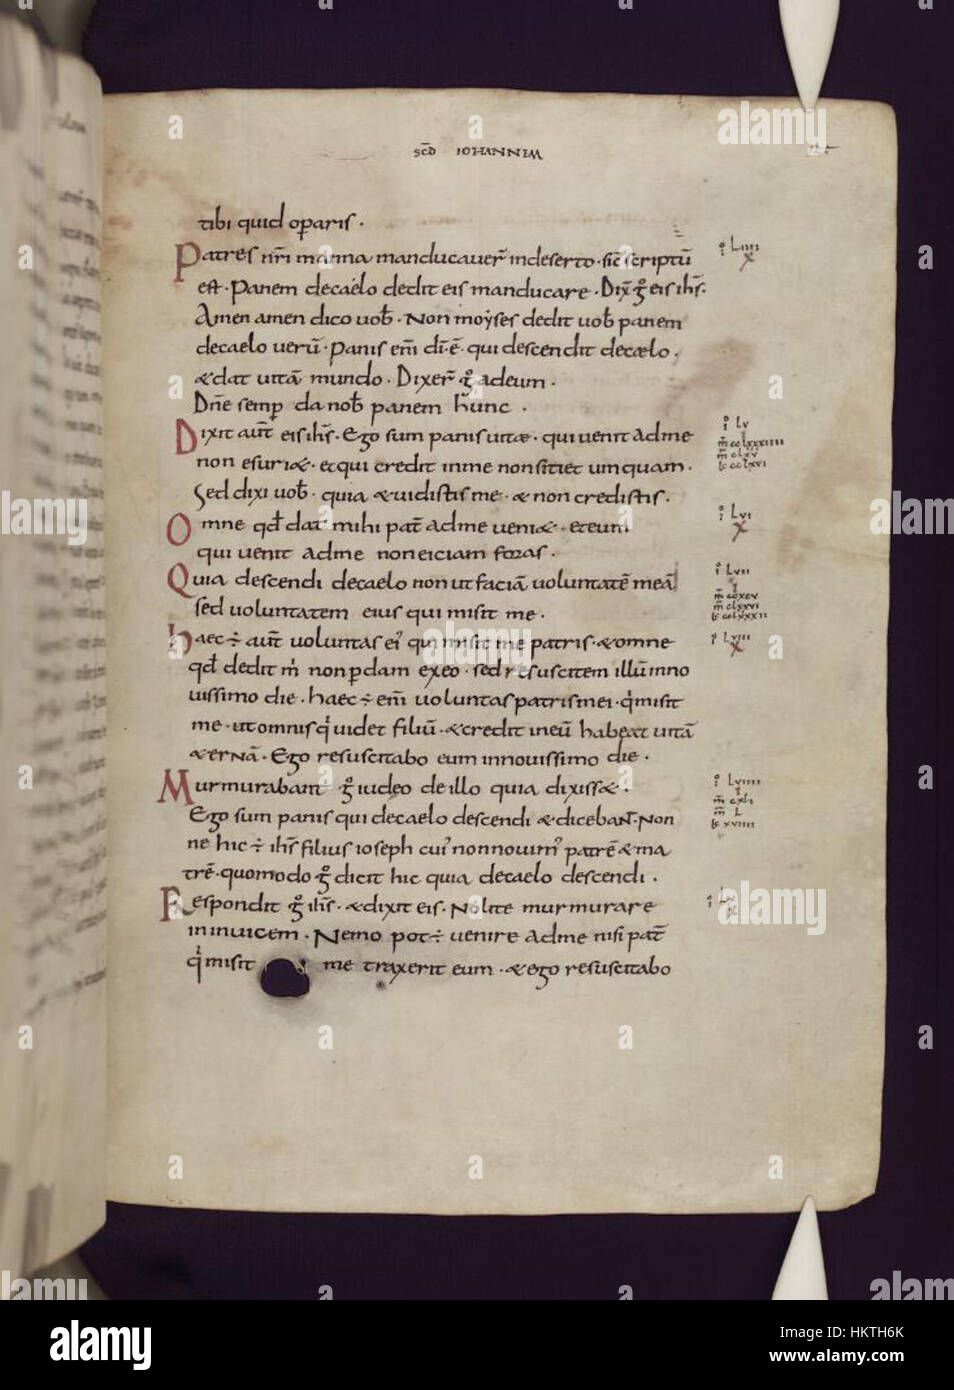 scd̄ IOHANNEM
tibi quid opꝑaris ·
Patres nr̄i manna manducaver̄ indeserto · sic̄ scriptū
est · Panem decaelo dedit eis manducare · Dix̄ g̊ eis ih̄s ·
Amen amen dico uob̄ · Non moẏses dedit uob̄ panem
decaelo uerū · Panis em̄ dī · ē · qui descendit decælo ·
&dat uitā mundo · Dixer̄ g̊ adeum ·
Dn̄e semp̱ da nob̄ panem hunc ·
Dixit aut̄ eis ih̄s · Ego sum panis uitae · qui uenit adme
non esuri& · etqui credit inme non sitiet umquam ·
Sed dixi uob̄ · quia &uidistis me · & non credistis ·
Omne qd̄ dat mihi pat̄ adme ueni& · eteum
qui uenit adme noneiciam foras ·
Quia descendi decaelo non ut faciā uoluntatē meā
sed uoluntatem eius qui misit me ·
haec ÷ aut̄ uoluntas ei᾽ qui misit me patris · &omne
qd̄ dedit m̍ non ꝑdam exeo · sed resuscitem illū inno
uissimo die · haec ÷ em̄ uoluntas patris mei · q̍ misit
me · ut omnis q̍ uidet filiū · &credit ineū habeat uitā
&ernā · Ego resuscitabo eum innouissimo die ·
Murmurabant g̊ iudęo deillo quia dixiss& ·
Ego sum panis qui decaelo descendi &dicebaN̄ · Non
ne hic ÷ ih̄s filius ioseph cui᾽ nonnouim᾽ patrē &ma
trē · quomodo g̊ dicit hic quia decaelo descendi ·
Respondit g̊ ih̄s · &dixit eis · Nolite murmurare
ininuicem · Nemo pot÷ uenire adme nisi pat̄
q̍ misit me traxerit eum · &ego resuscitabo
i Liiii
x
i Lv
m̄ cclxxxiiii
m̄ clxv
lc cclxvi
i Lvi
x
i Lvii
i
m̄ ccxcv
m̄ clxxvi
lc cclxxxii
i Lviii
x
i Lviiii
i
m̄ cxli
m̄ L
lc xviiii
x
alamy
HKTH6K
www.alamy.com